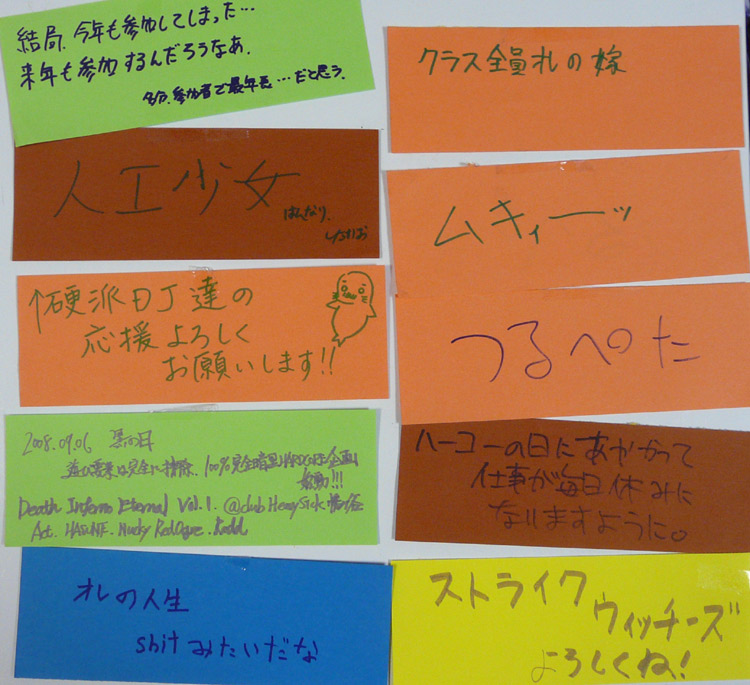 結局、今年も参加してしまった…
来年も参加するんだろうなあ、
多分、参加者で最年長…だと思う、
人工少女
はんなり、
↑硬派DJ達の
応援よろしく
お願いします!!
2008.09.06 黒の日
100%完全暗黒HARDCORE企画
始動!!!
Death Inferno Eternal Vol.1. @club Heavy Sick
Act.
オレの人生
shitみたいだな
クラス全員オレの嫁
ムキィーッ
つるぺた
ハーコーの日にあやかって
仕事が毎日休みに
なりますように。
ストライク
ウィッチーズ
よろしくね!